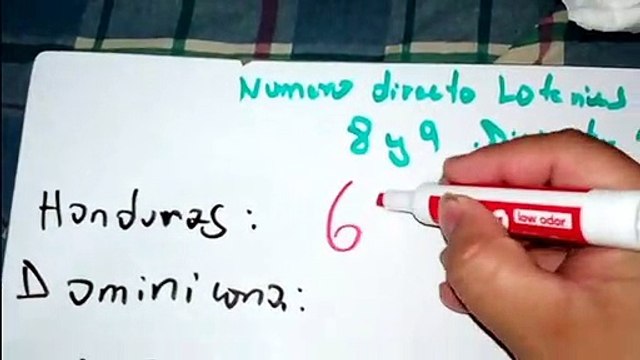 Numero directo Loterias
8 y 9
Honduras: 6
Dominicana:
low odor